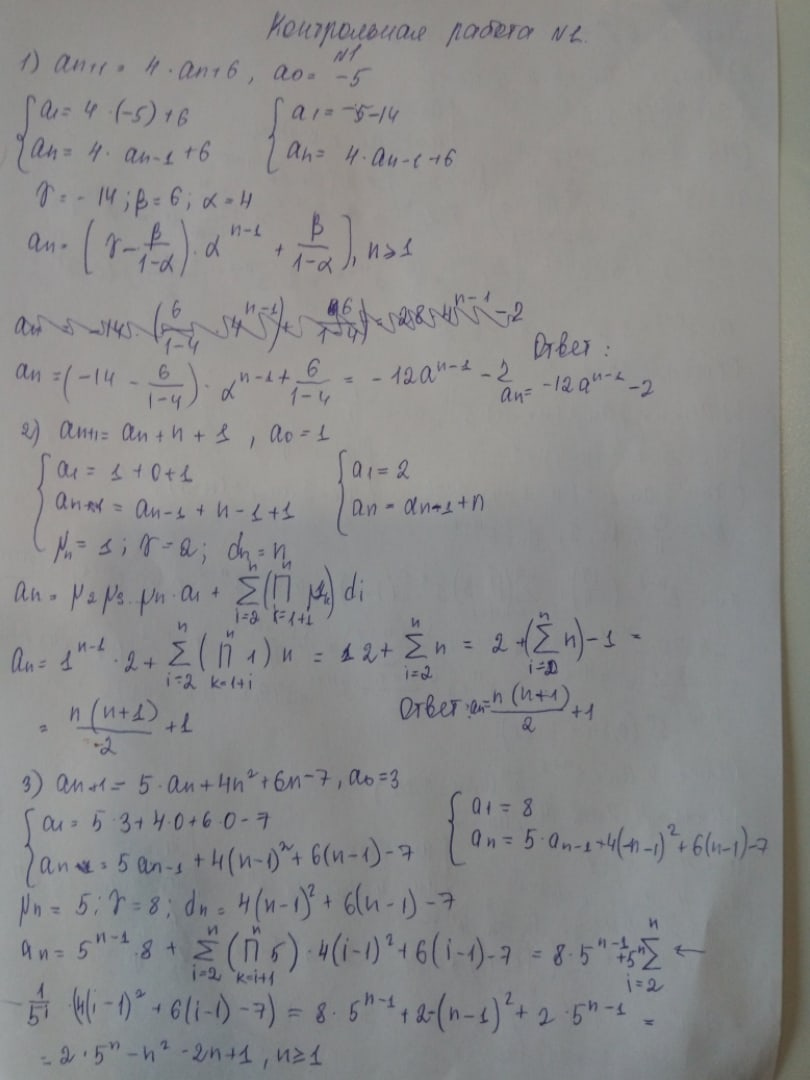 Контрольная работа №1.
№1
1) an+1 = 4·an+6, a0 = -5
{ a1 = 4·(-5)+6   { a1 = -5-14
{ an = 4·an-1+6   { an = 4·an-1+6
γ = -14; β = 6; α = 4
an = (γ - β/(1-α))·α^(n-1) + β/(1-α), n≥1
an = (-14 - 6/(1-4))·α^(n-1) + 6/(1-4) = -12a^(n-1) - 2
Ответ:
an = -12a^(n-1) - 2
2) an+1 = an + n + 1, a0 = 1
{ a1 = 1+0+1   { a1 = 2
{ an = an-1 + n-1+1   { an = an-1+n
μn = 1; γ = 2; dn = n
an = μ2 μ3 … μn·a1 + Σ(i=2, n) (Π(k=i+1, n) μk) di
an = 1^(n-1)·2 + Σ(i=2, n) (Π(k=1+i, n) 1) n = 2 + Σ(i=2, n) n = 2 + (Σ n) - 1 =
= n(n+1)/2 + 1   Ответ: an = n(n+1)/2 + 1
3) an+1 = 5·an+4n²+6n-7, a0 = 3
{ a1 = 5·3+4·0+6·0-7   { a1 = 8
{ an = 5an-1+4(n-1)²+6(n-1)-7   { an = 5·an-1+4(n-1)²+6(n-1)-7
μn = 5; γ = 8; dn = 4(n-1)²+6(n-1)-7
an = 5^(n-1)·8 + Σ(i=2, n) (Π(k=i+1, n) 5)·4(i-1)²+6(i-1)-7 = 8·5^(n-1)+5^n Σ(i=2, n) ←
1/5^i·(4(i-1)²+6(i-1)-7) = 8·5^(n-1)+2-(n-1)²+2·5^(n-1) =
= 2·5^n-n²-2n+1, n≥1